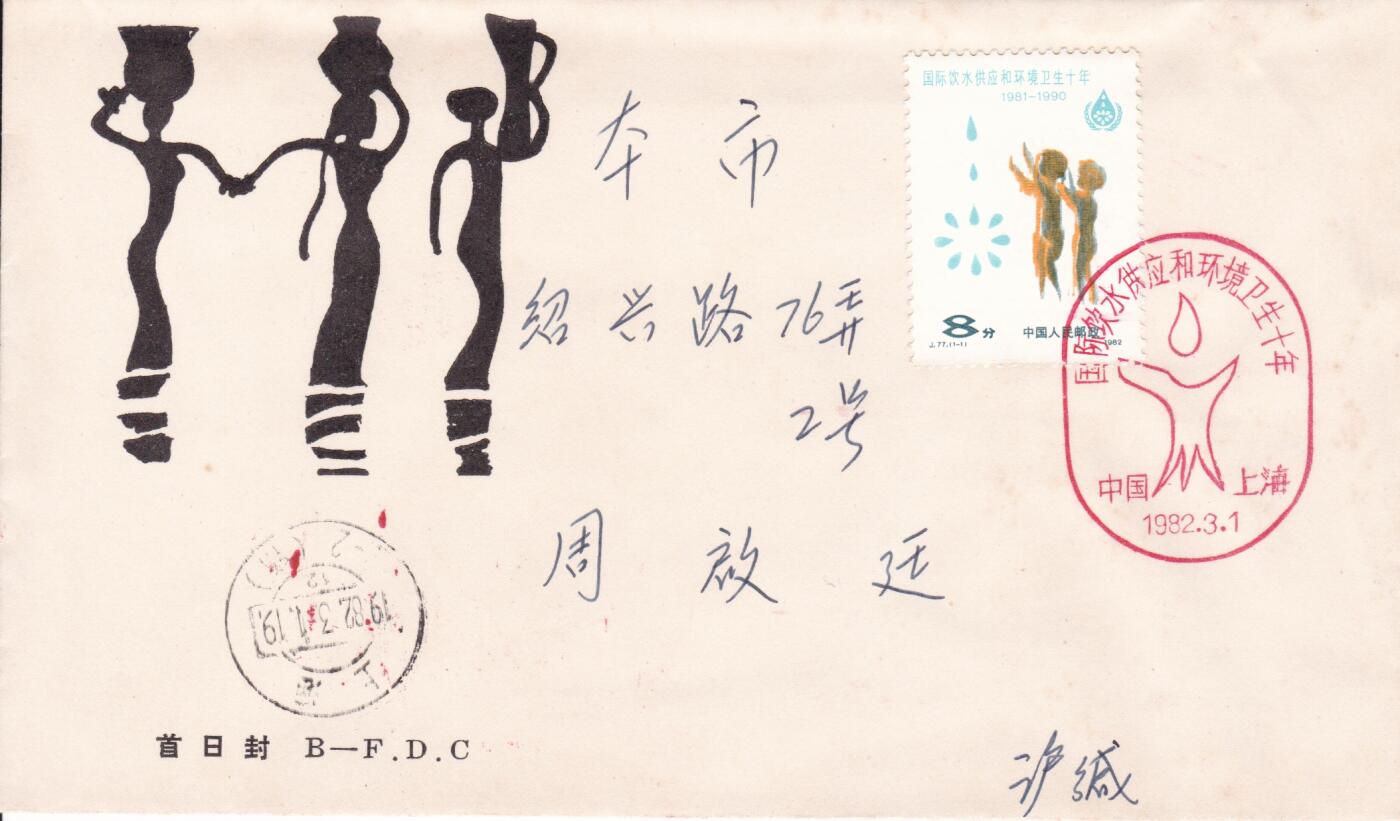 国际饮水供应和环境卫生十年
1981-1990
8分
中国人民邮政
J.77.(1-1)
1982
本市
绍兴路76弄
2号
周啟廷
国际饮水供应和环境卫生十年
中国
上海
1982.3.1
1982.3.1.19
12
上海
首日封 B—F.D.C
沪缄